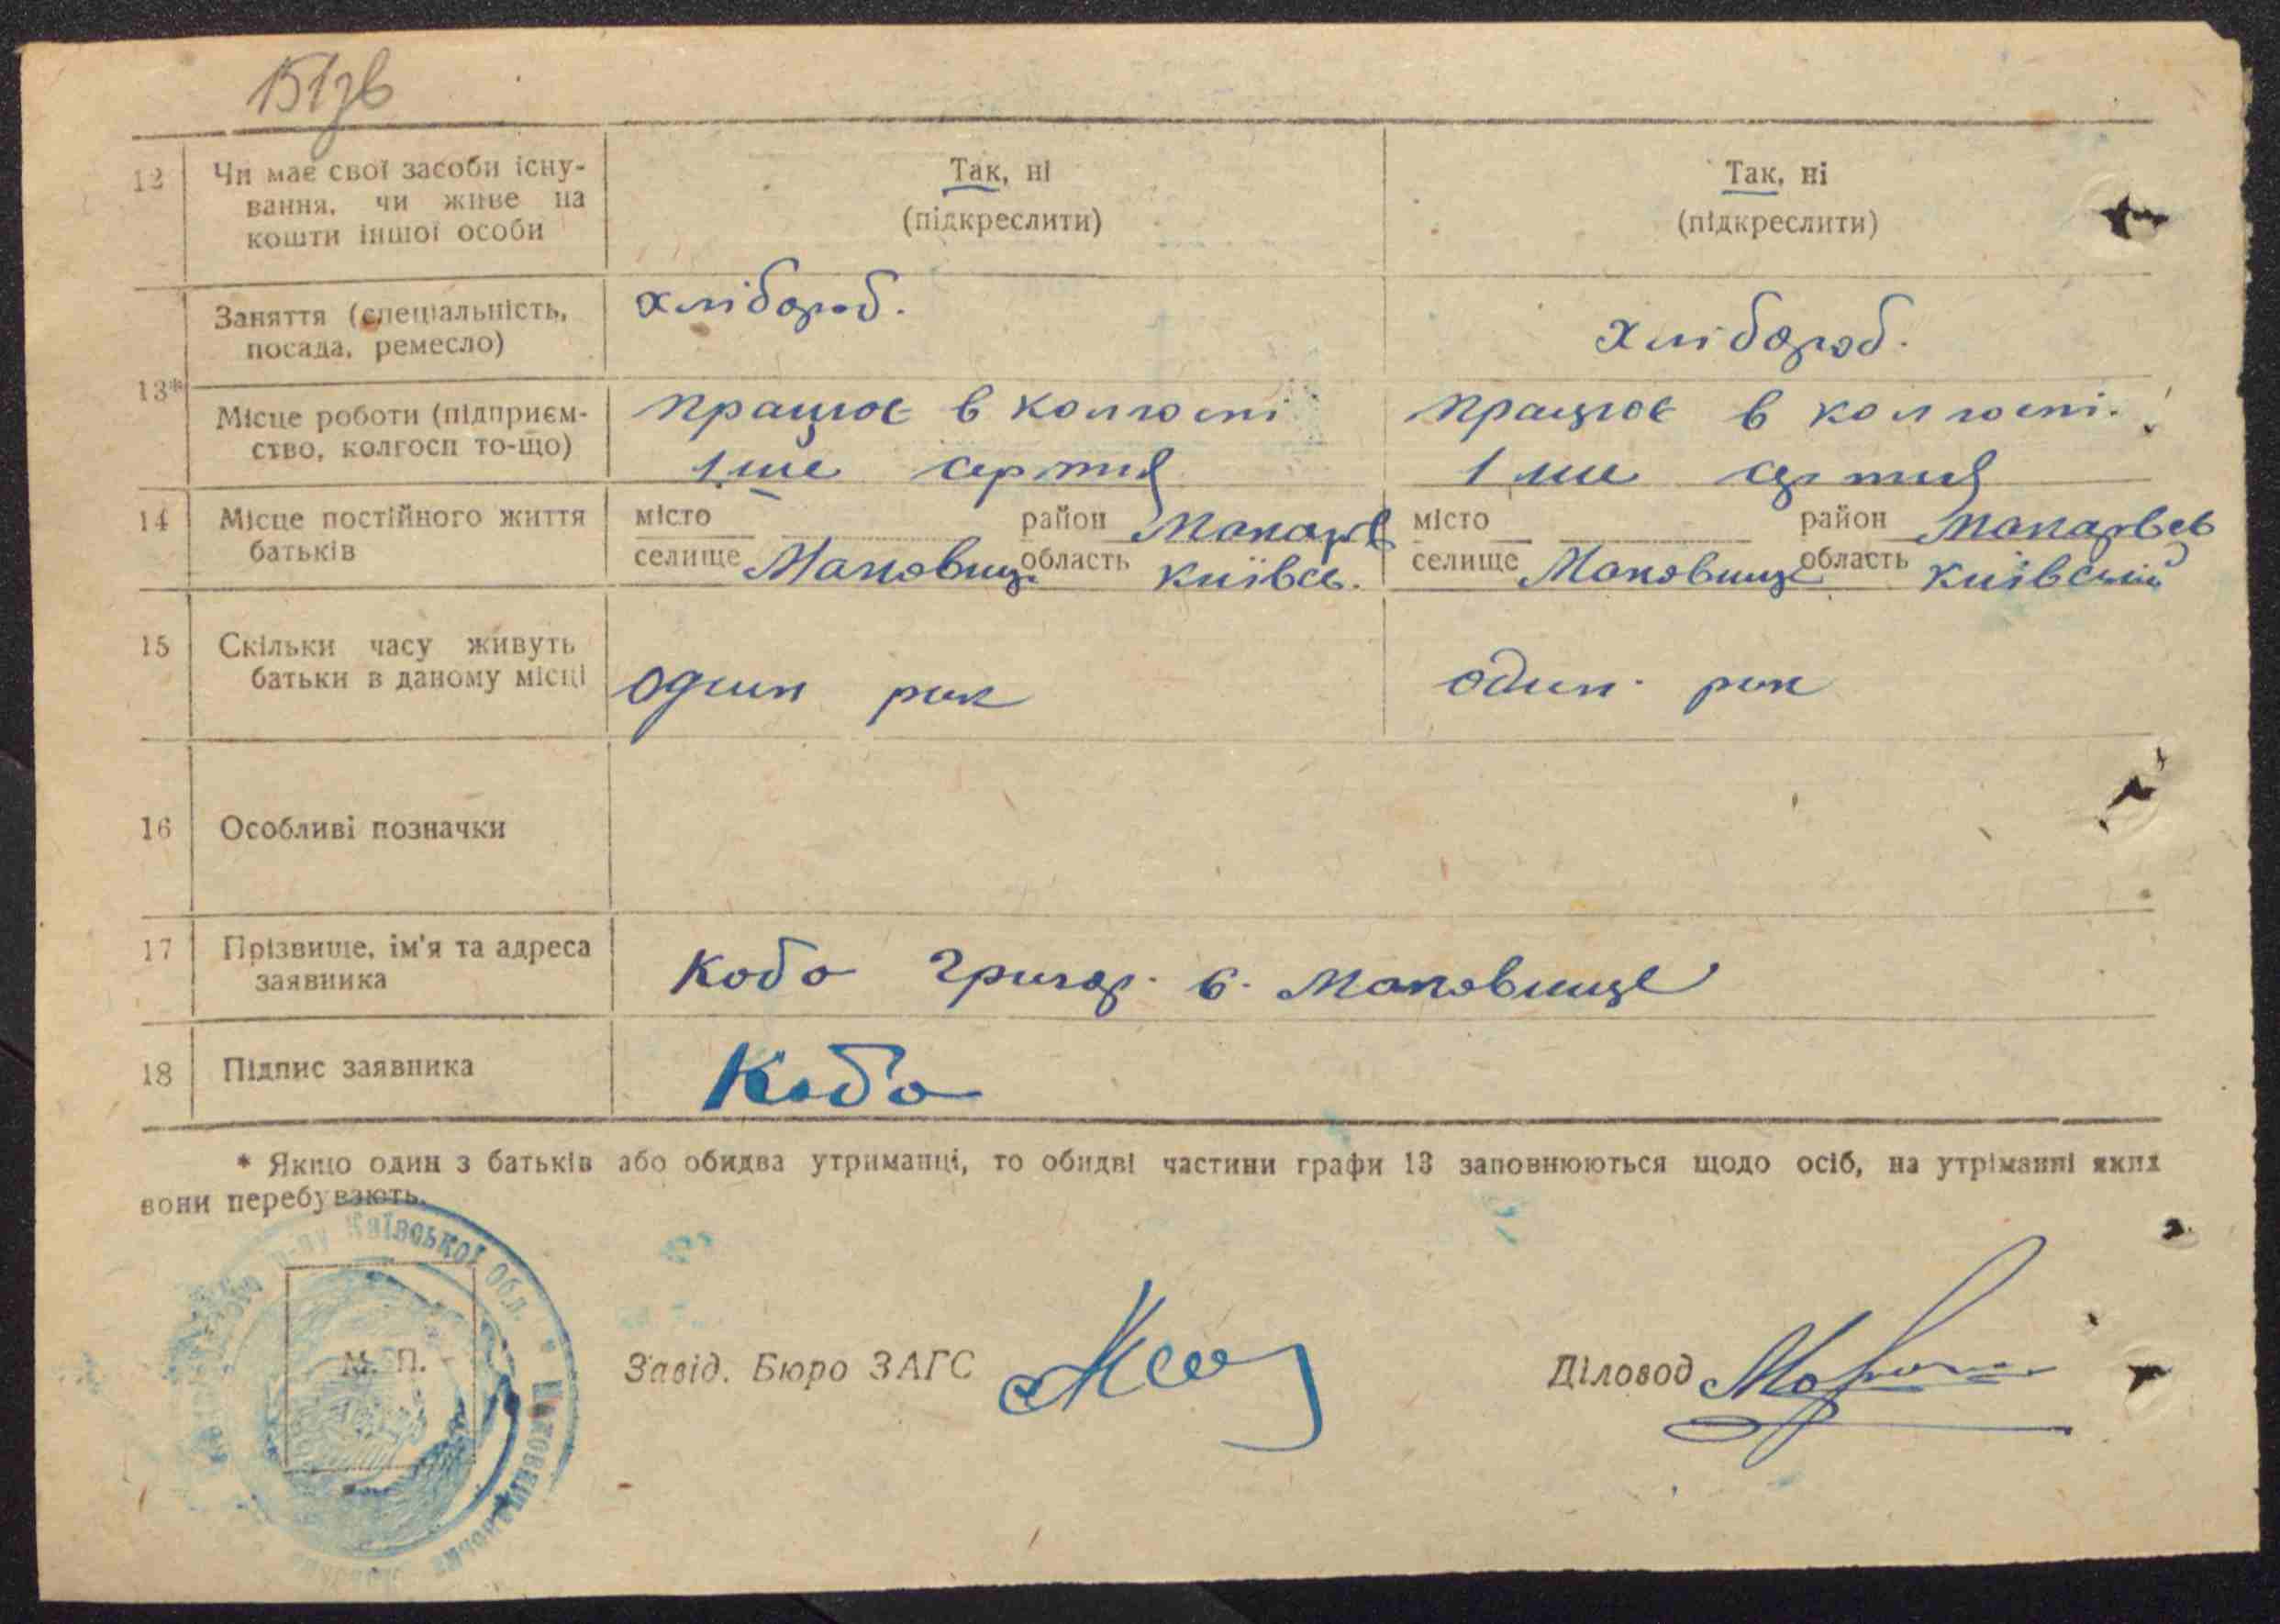 151зв
12 Чи має свої засоби існу-
вання, чи живе на
кошти іншої особи
Так, ні
(підкреслити)
Так, ні
(підкреслити)
13*
Заняття (спеціальність,
посада, ремесло)
хлібороб.
хлібороб.
Місце роботи (підприєм-
ство, колгосп то-що)
працює в колгоспі
1 ше серпня
працює в колгоспі.
1 ше серпня
14 Місце постійного життя
батьків
місто район Макарів
селище Маковище область київсь.
місто район Макарівсь
селище Маковище область київській
15 Скільки часу живуть
батьки в даному місці
один рик
один рик
16 Особливі позначки
17 Прізвище, ім'я та адреса
заявника
Кобо Григор. с. Маковище
18 Підпис заявника
Кобо
* Якщо один з батьків або обидва утриманці, то обидві частини графи 13 заповнюються щодо осіб, на утріманні яких
вони перебувають.
р-ну Київської Обл.
М. П.
Завід. Бюро ЗАГС
Діловод